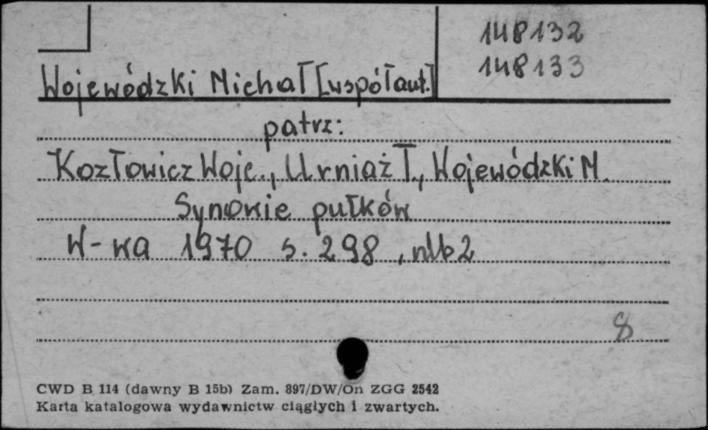 148132
148133
Wojewódzki Michał [współaut.]
patrz:
Kozłowicz Wojc., Urniaż T., Wojewódzki M.
Synowie pułków
W-wa 1970 s. 298, nlb 2
8
CWD B 114 (dawny B 15b) Zam. 897/DW/On ZGG 2542
Karta katalogowa wydawnictw ciągłych i zwartych.